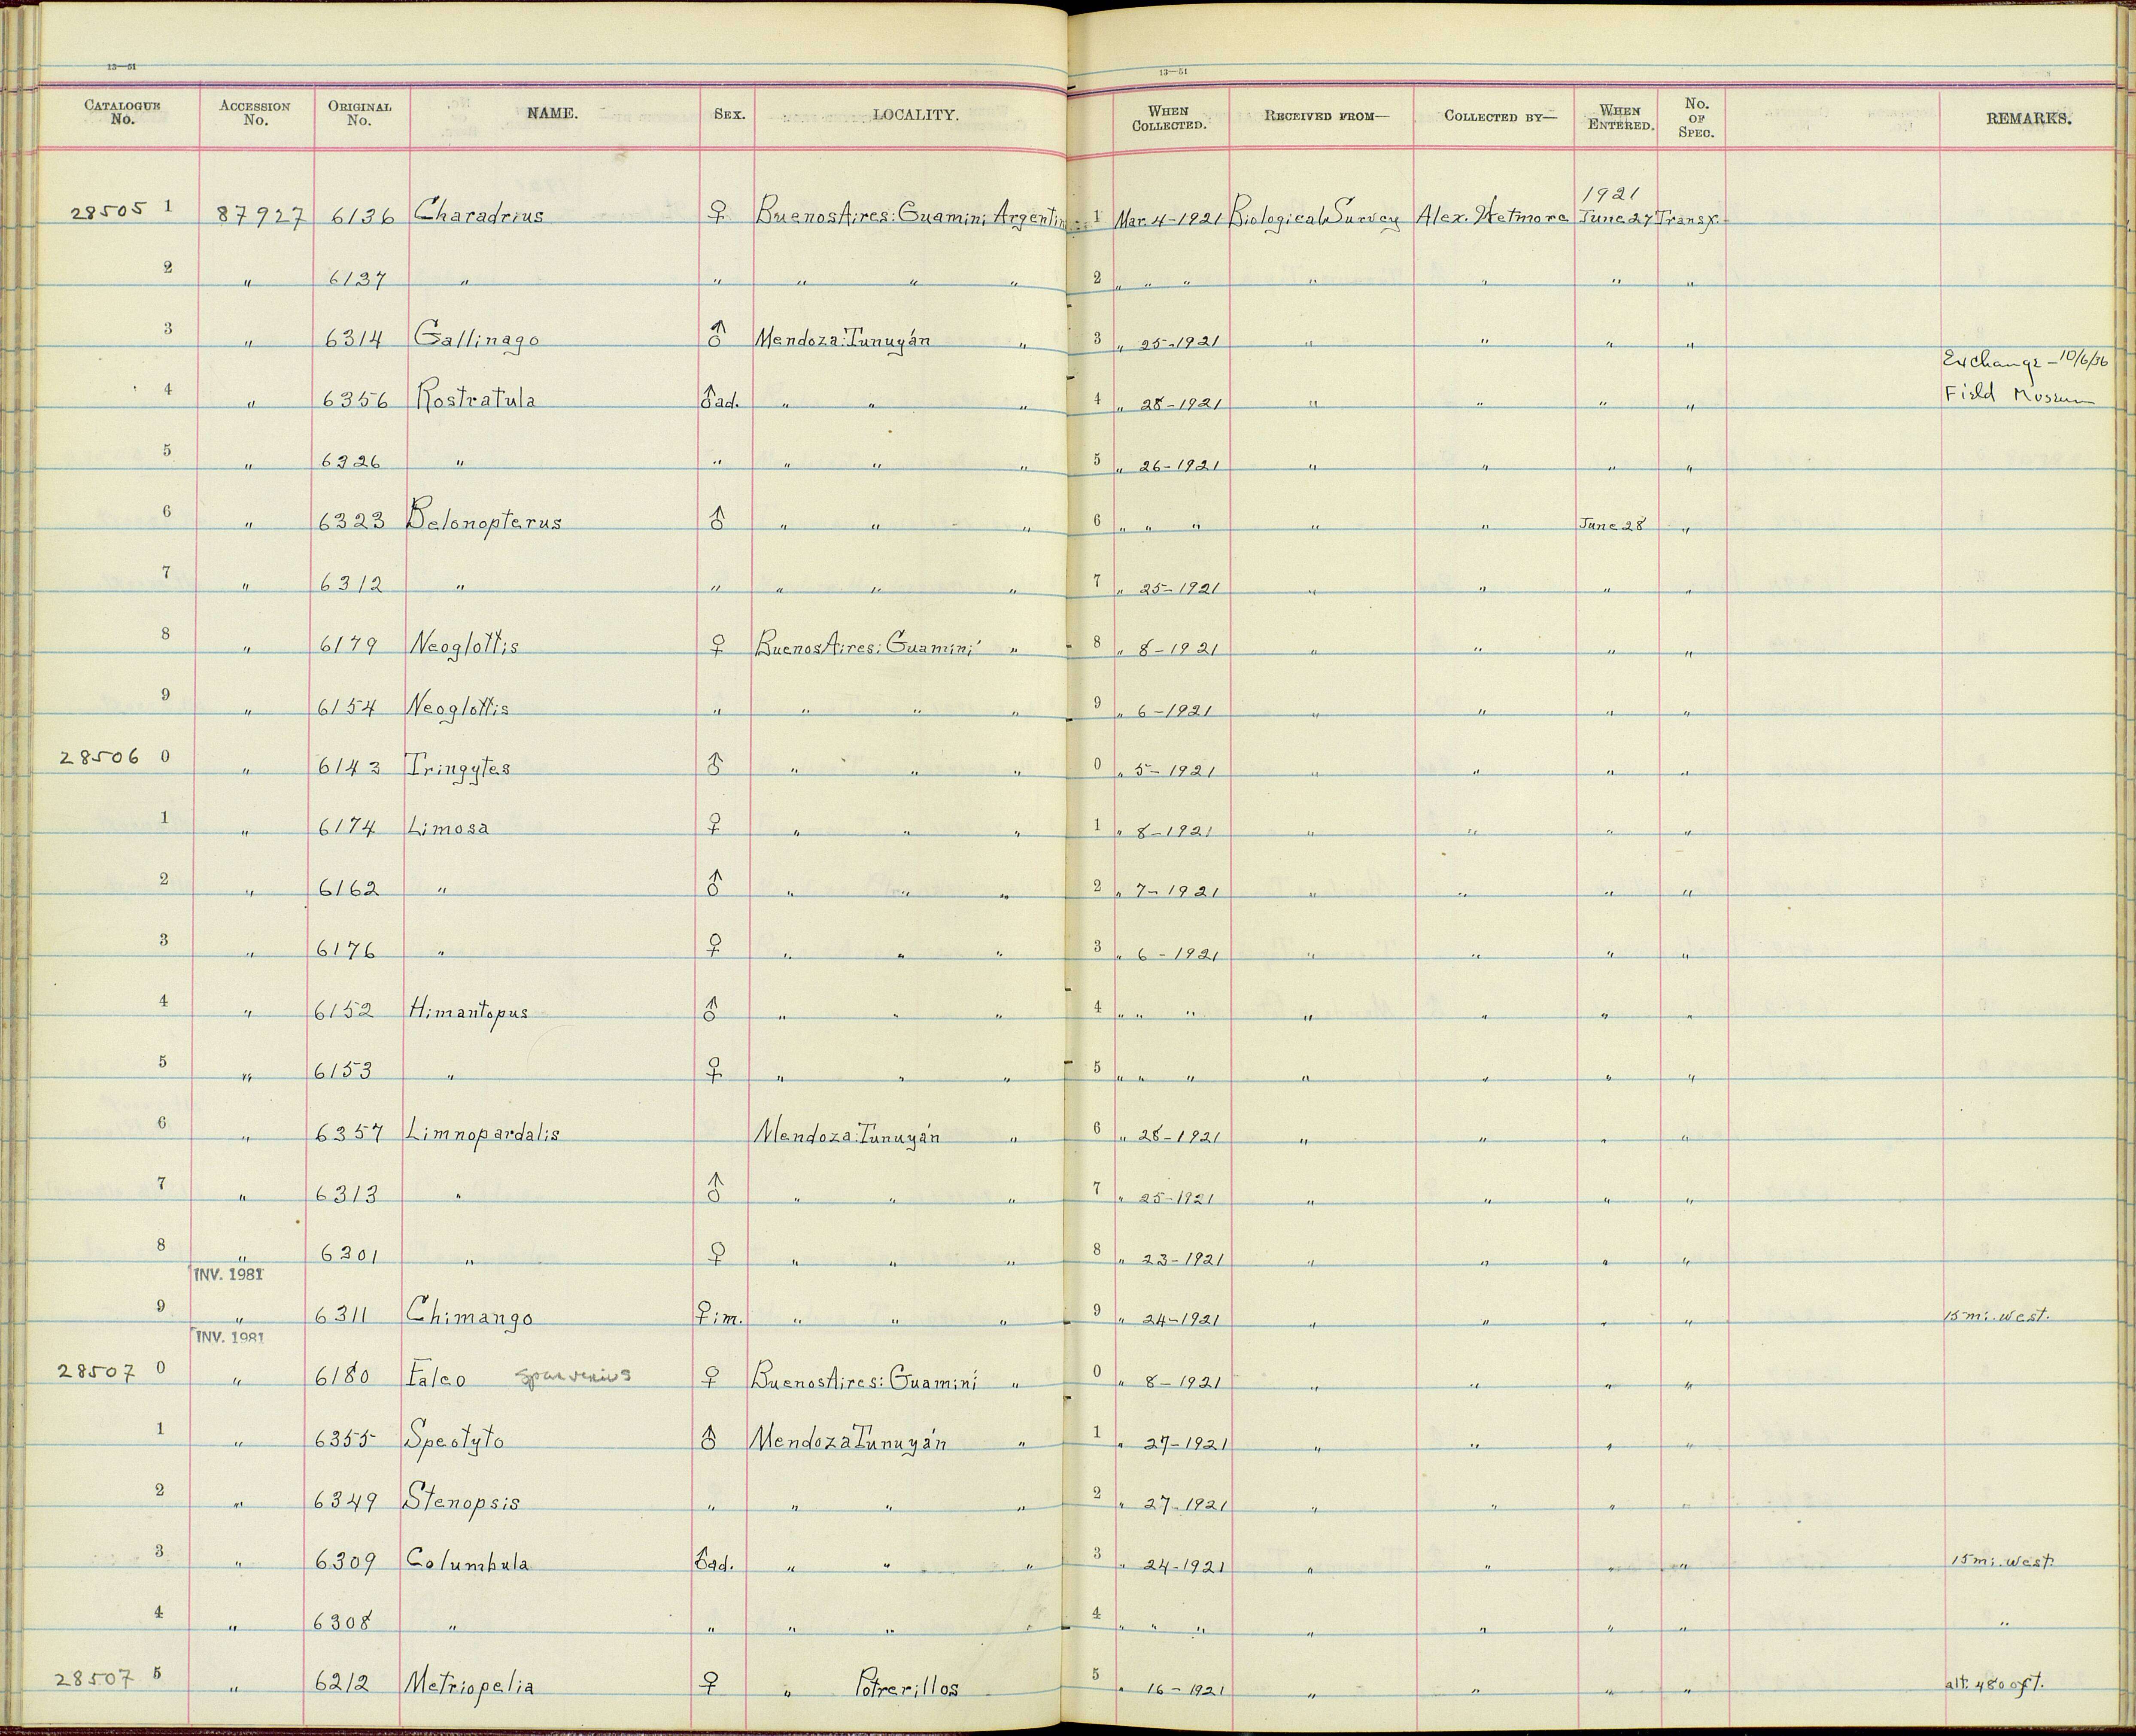 13—51 13—51
CATALOGUE No. ACCESSION No. ORIGINAL No. NAME. SEX. LOCALITY. WHEN COLLECTED. RECEIVED FROM— COLLECTED BY— WHEN ENTERED. No. OF SPEC. REMARKS.
1921
28505 1 87927 6136 Charadrius ♀ Buenos Aires: Guamini Argentin 1 Mar. 4-1921 Biological Survey Alex. Wetmore June 27 Transf.
2 " 6137 " " " " " 2 " " " " " " "
3 " 6314 Gallinago ♂ Mendoza: Tunuyán " 3 " 25-1921 " " " "
Exchange - 10/6/36
4 " 6356 Rostratula ♂ad. " " " 4 " 28-1921 " " " " Field Museum
5 " 6326 " " " " " 5 " 26-1921 " " " "
6 " 6323 Belonopterus ♂ " " " 6 " " " " " June 28 "
7 " 6312 " " " " " 7 " 25-1921 " " " "
8 " 6179 Neoglottis ♀ Buenos Aires: Guamini " 8 " 8-1921 " " " "
9 " 6154 Neoglottis " " " " 9 " 6-1921 " " " "
28506 0 " 6143 Tringytes ♂ " " " 0 " 5-1921 " " " "
1 " 6174 Limosa ♀ " " " 1 " 8-1921 " " " "
2 " 6162 " ♂ " " " 2 " 7-1921 " " " "
3 " 6176 " ♀ " " " 3 " 6-1921 " " " "
4 " 6152 Himantopus ♂ " " " 4 " " " " " " "
5 " 6153 " ♀ " " " 5 " " " " " " "
6 " 6357 Limnopardalis Mendoza: Tunuyán " 6 " 28-1921 " " " "
7 " 6313 " ♂ " " " 7 " 25-1921 " " " "
8 " 6301 " ♀ " " " 8 " 23-1921 " " " "
INV. 1981
9 " 6311 Chimango ♀im. " " " 9 " 24-1921 " " " " 15 mi. west.
INV. 1981
28507 0 " 6180 Falco sparverius ♀ Buenos Aires: Guamini " 0 " 8-1921 " " " "
1 " 6355 Speotyto ♂ Mendoza Tunuyán " 1 " 27-1921 " " " "
2 " 6349 Stenopsis " " " " 2 " 27-1921 " " " "
3 " 6309 Columbula ♂ad. " " " 3 " 24-1921 " " " " 15 mi. west.
4 " 6308 " " " " " 4 " " " " " " " "
28507 5 " 6212 Metriopelia ♀ " Potrerillos 5 " 16-1921 " " " " alt. 4800 ft.